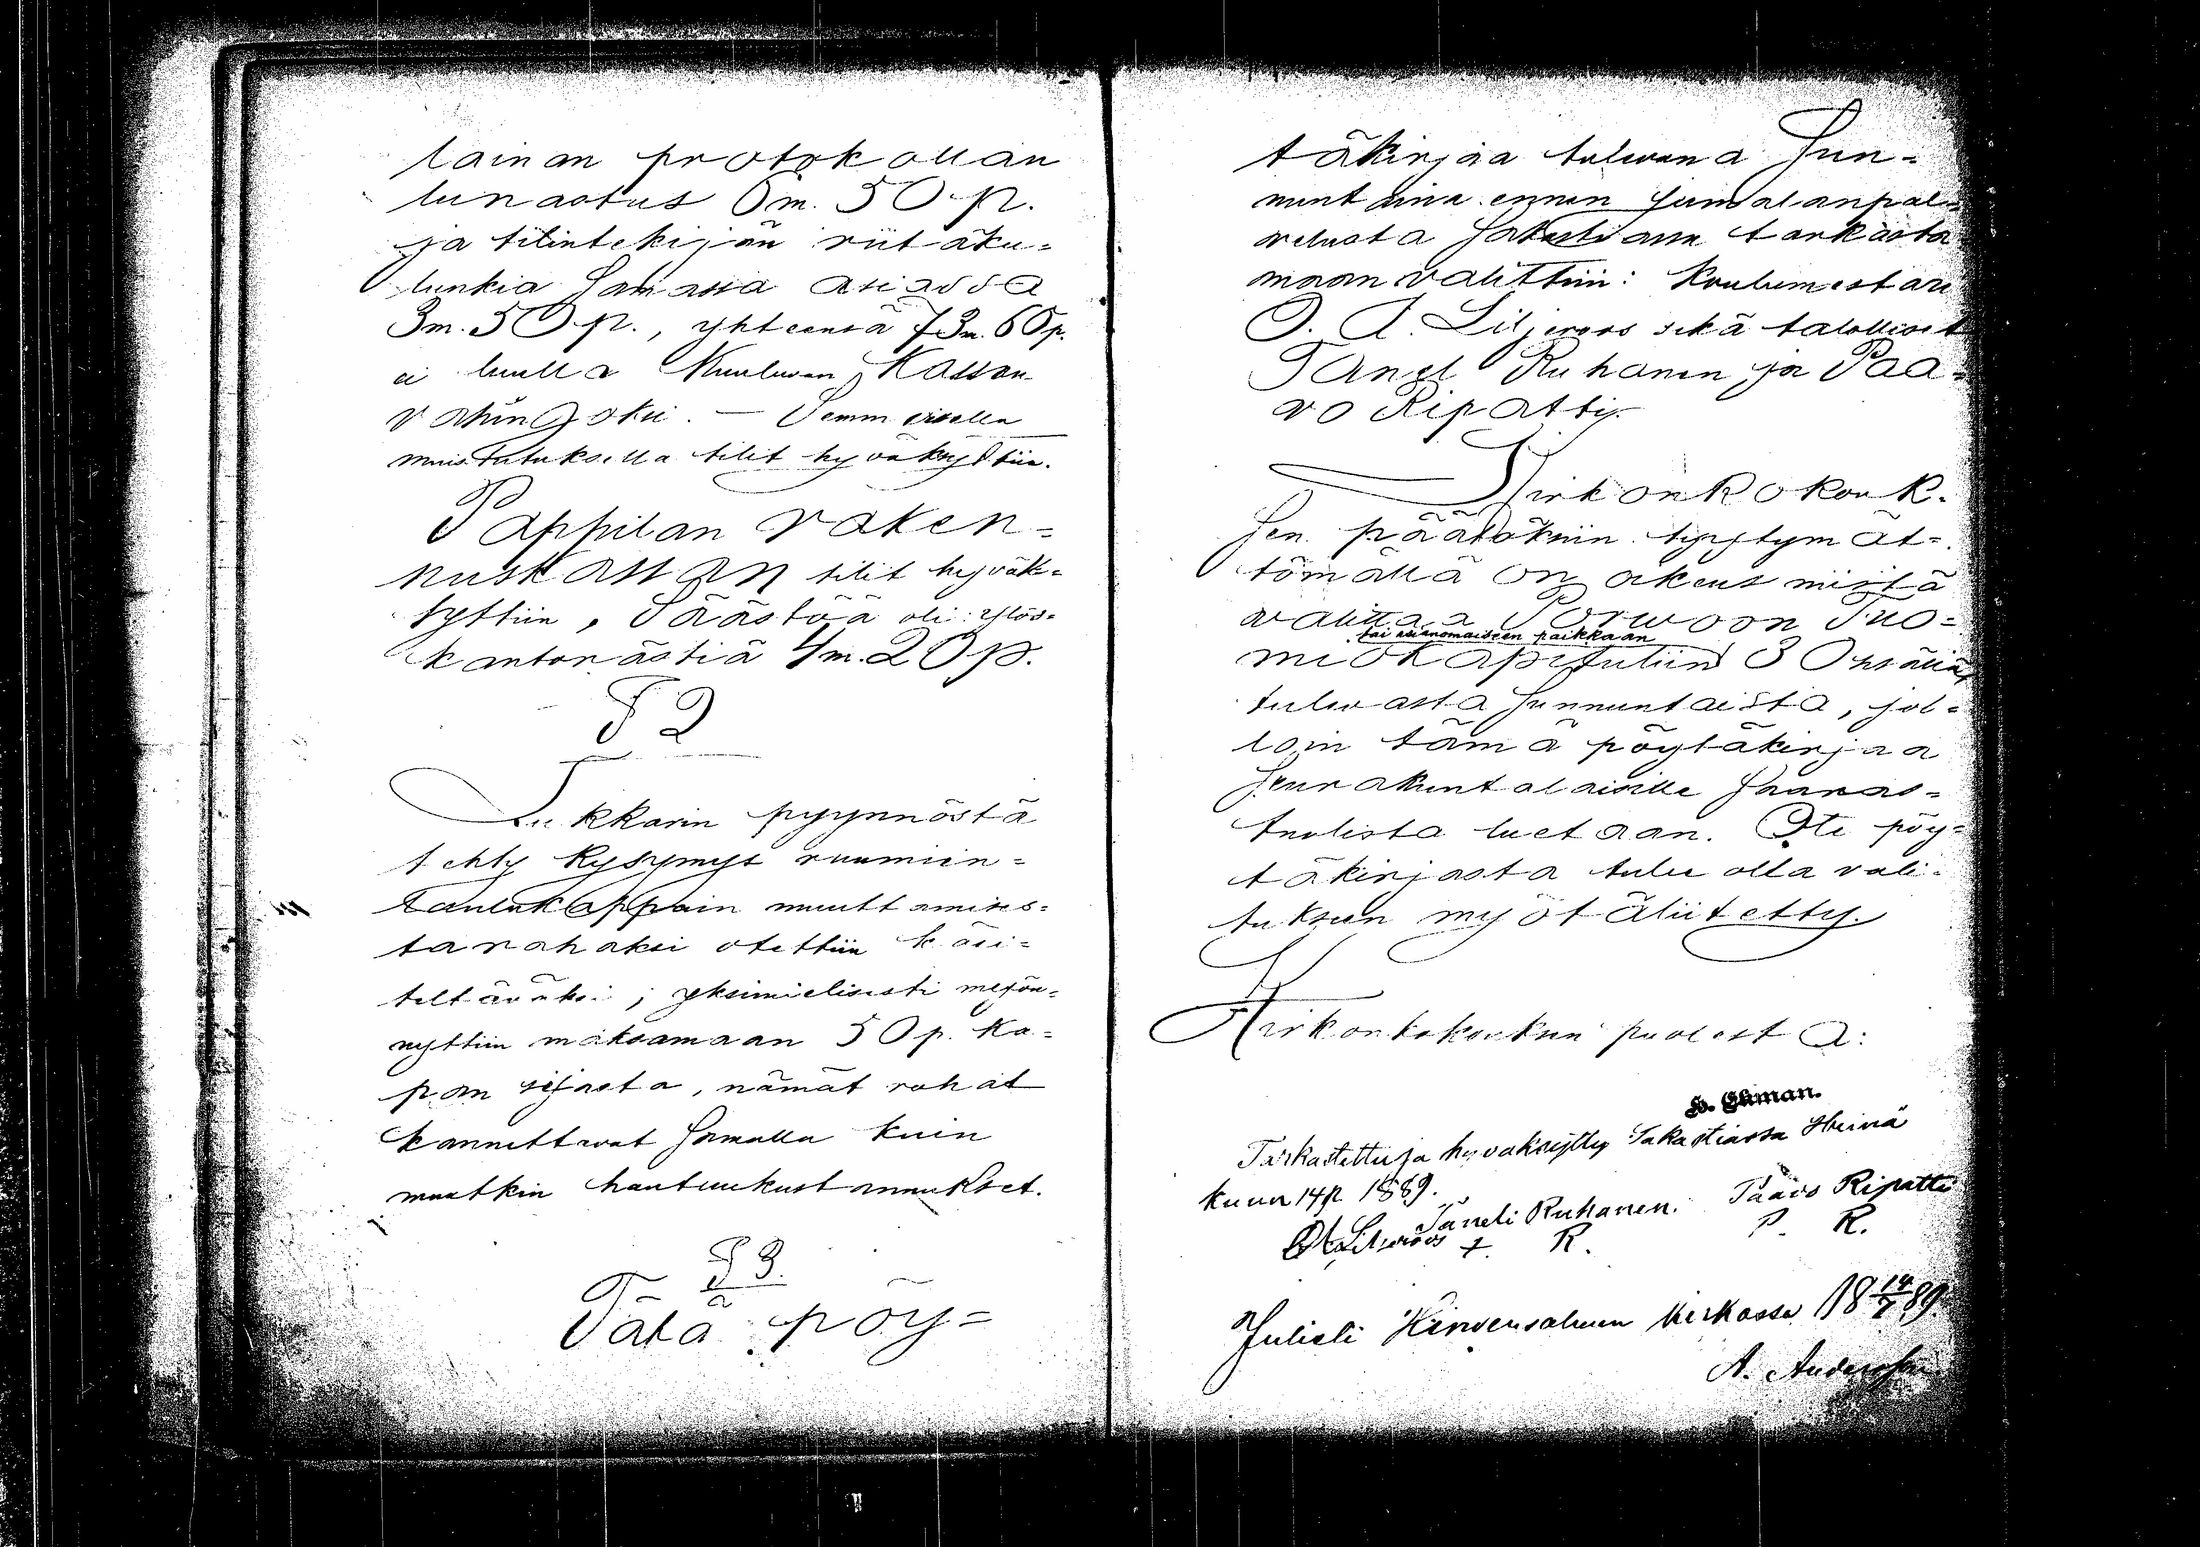 lainan protokollan
lunastus 6 m. 50 p.
ja tilintekijän riitäku-
lunkia samassa asiassa
3 m. 50 p., yhteensä 73 m. 60 p.
ei luulla kuuluvan Kassan
vahingoksi. — Semmoisella
muistutuksella tilit hyväksyttiin.
Pappilan raken=
nuskassan tilit hyväk=
syttiin, Säästöä oli ylös=
kantorästiä 4 m. 20 p.
§ 2
Lukkarin pyynnöstä
tehty kysymys ruumiin=
laulukappain muuttamises=
ta rahaksi otettiin käsi=
teltäväksi; yksimielisesti myön=
nyttiin maksamaan 50 p. ka=
pan sijasta, nämät rahat
kannettavat samalla kuin
muutkin hautuukustannukset.
§ 3.
Tätä pöy=
täkirjaa tulevana Sun=
nuntaina ennen jumalanpal=
velusta Sakastiassa tarkasta=
maan valittiin: koulumestari
O. A. Liljeroos sekä talolliset
Tanel Ruhanen ja Paa=
vo Ripatti.
Kirkonkokouk-
sen päätöksiin tyytymät=
tömällä on oikeus niistä
valittaa Porwoon Tuo=
tai asianomaiseen paikkaan
miokapituliin 30 p:ssä
tulevasta sunnuntaista, jol=
loin tämä pöytäkirjaa
seurakuntalaisille saarnas=
tuolista luetaan. Ote pöy=
täkirjasta tulee olla vali=
tuksen myötäliitetty.
Kirkonkokouksen puolesta:
H. Ekman.
Tarkastettu ja hyväksytty Sakastiassa Heinä
kuun 14 p. 1889.
O A Liljeroos Taneli Ruhanen. Paavo Ripatti
T. R. P. R.
Julisti Hirvensalmen kirkossa 18 14/7 89.
A. Andersson